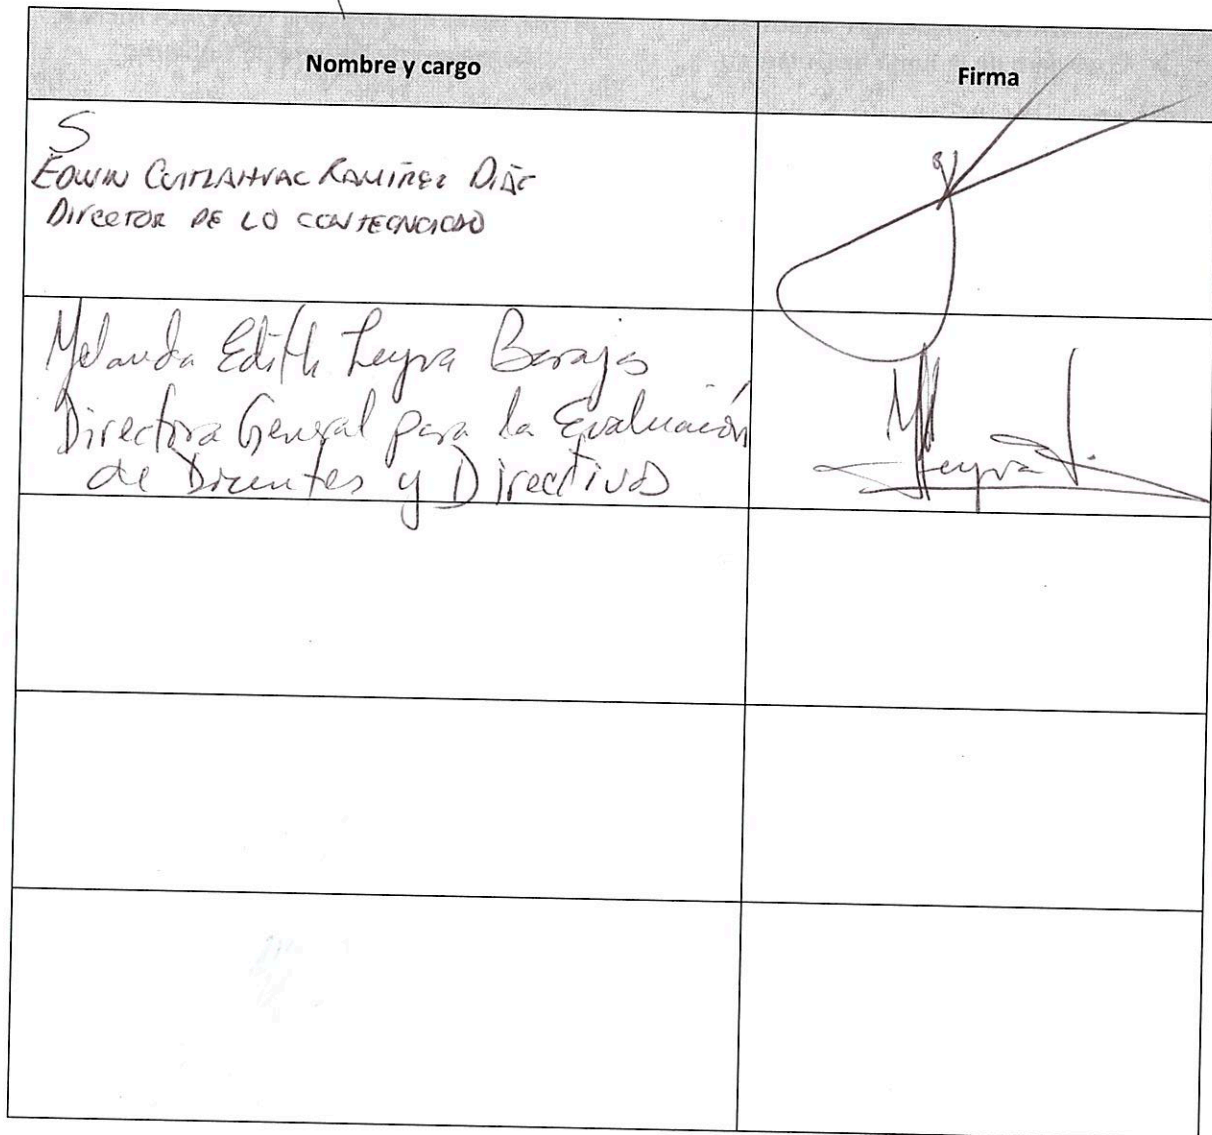 Nombre y cargo
Firma
S
EDWIN CUITLAHUAC RAMÍREZ DÍAZ
DIRECTOR DE LO CONTENCIOSO
Yolanda Edith Leyva Barajas
Directora General para la Evaluación
de Docentes y Directivos
Leyva